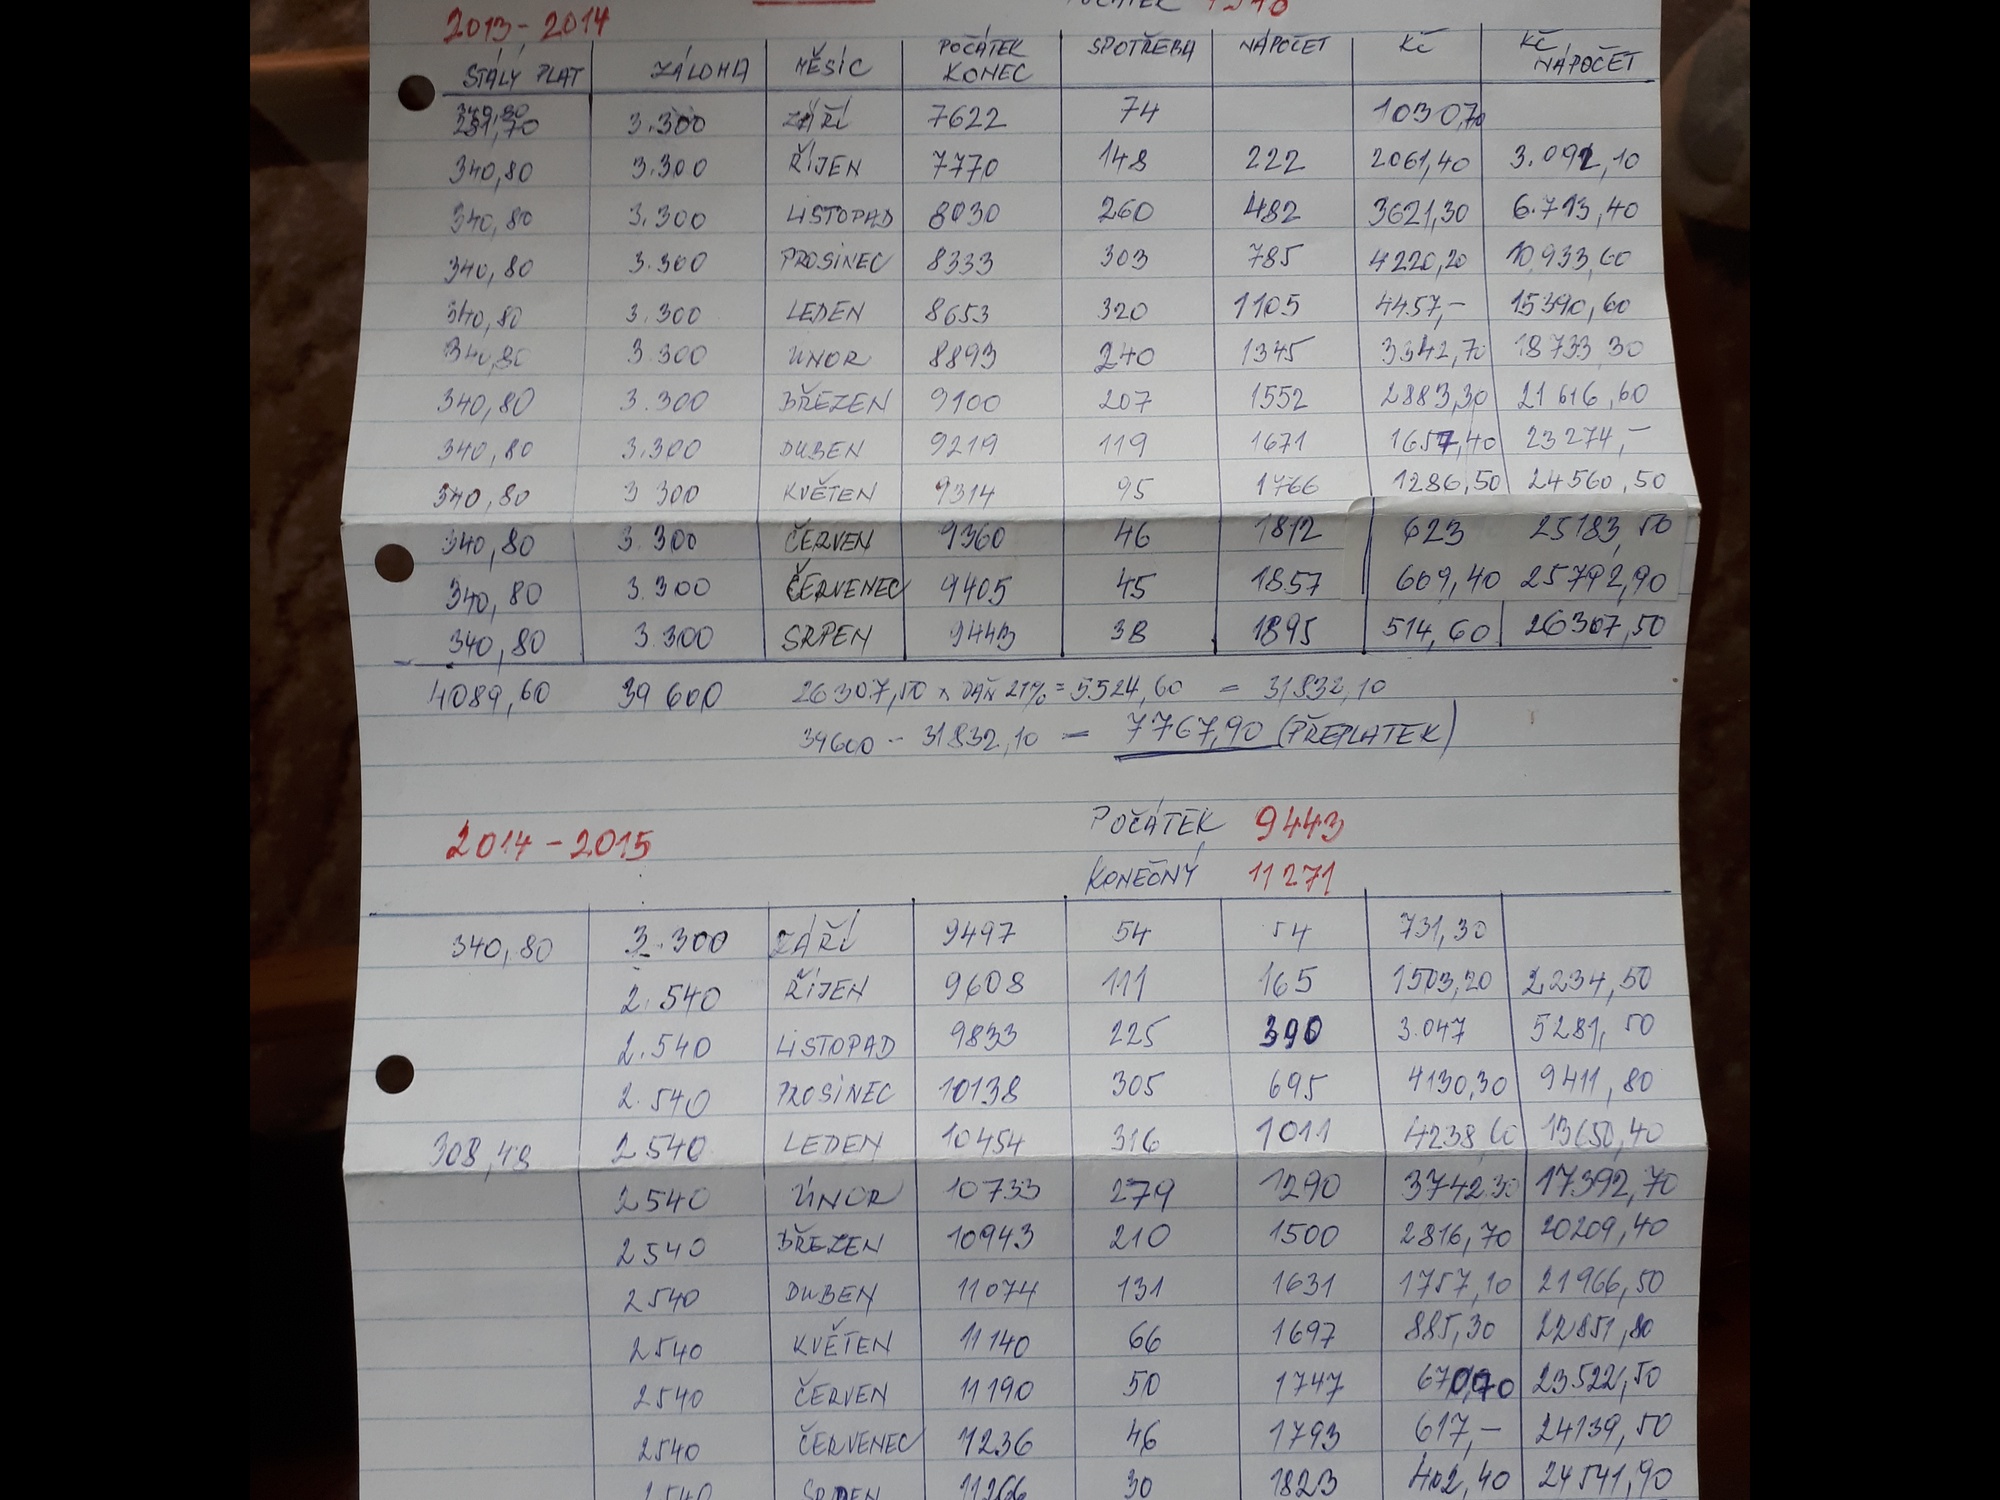 2013-2014 POČÁTEK
STÁLÝ PLAT ZÁLOHA MĚSÍC POČÁTEK KONEC SPOTŘEBA NÁPOČET KČ KČ NÁPOČET
3.300 ZÁŘÍ 7622 74 1030,70
340,80 3.300 ŘÍJEN 7770 148 222 2061,40 3.092,10
340,80 3.300 LISTOPAD 8030 260 482 3621,30 6.713,40
340,80 3.300 PROSINEC 8333 303 785 4220,20 10933,60
340,80 3.300 LEDEN 8653 320 1105 4457,- 15390,60
340,80 3.300 ÚNOR 8893 240 1345 3342,70 18733,30
340,80 3.300 BŘEZEN 9100 207 1552 2883,30 21616,60
340,80 3.300 DUBEN 9219 119 1671 1657,40 23274,-
340,80 3 300 KVĚTEN 9314 95 1766 1286,50 24560,50
340,80 3.300 ČERVEN 9360 46 1812 623 25183,50
340,80 3.300 ČERVENEC 9405 45 1857 609,40 25792,90
340,80 3.300 SRPEN 9443 38 1895 514,60 26307,50
4089,60 39 600 26307,50 x DAŇ 21% = 5524,60 = 31832,10
39600 - 31832,10 = 7767,90 (PŘEPLATEK)
POČÁTEK 9443
2014-2015
KONEČNÝ 11271
340,80 3.300 ZÁŘÍ 9497 54 54 731,30
2.540 ŘÍJEN 9608 111 165 1503,20 2234,50
2.540 LISTOPAD 9833 225 390 3.047 5281,50
2.540 PROSINEC 10138 305 695 4130,30 9411,80
308,48 2540 LEDEN 10454 316 1011 4238,60 13650,40
2540 ÚNOR 10733 279 1290 3742.30 17392,70
2540 BŘEZEN 10943 210 1500 2816,70 20209,40
2540 DUBEN 11074 131 1631 1757,10 21966,50
2540 KVĚTEN 11140 66 1697 885,30 22851,80
2540 ČERVEN 11190 50 1747 670,70 23522,50
2540 ČERVENEC 11236 46 1793 617,- 24139,50
2540 SRPEN 11266 30 1823 402,40 24541,90